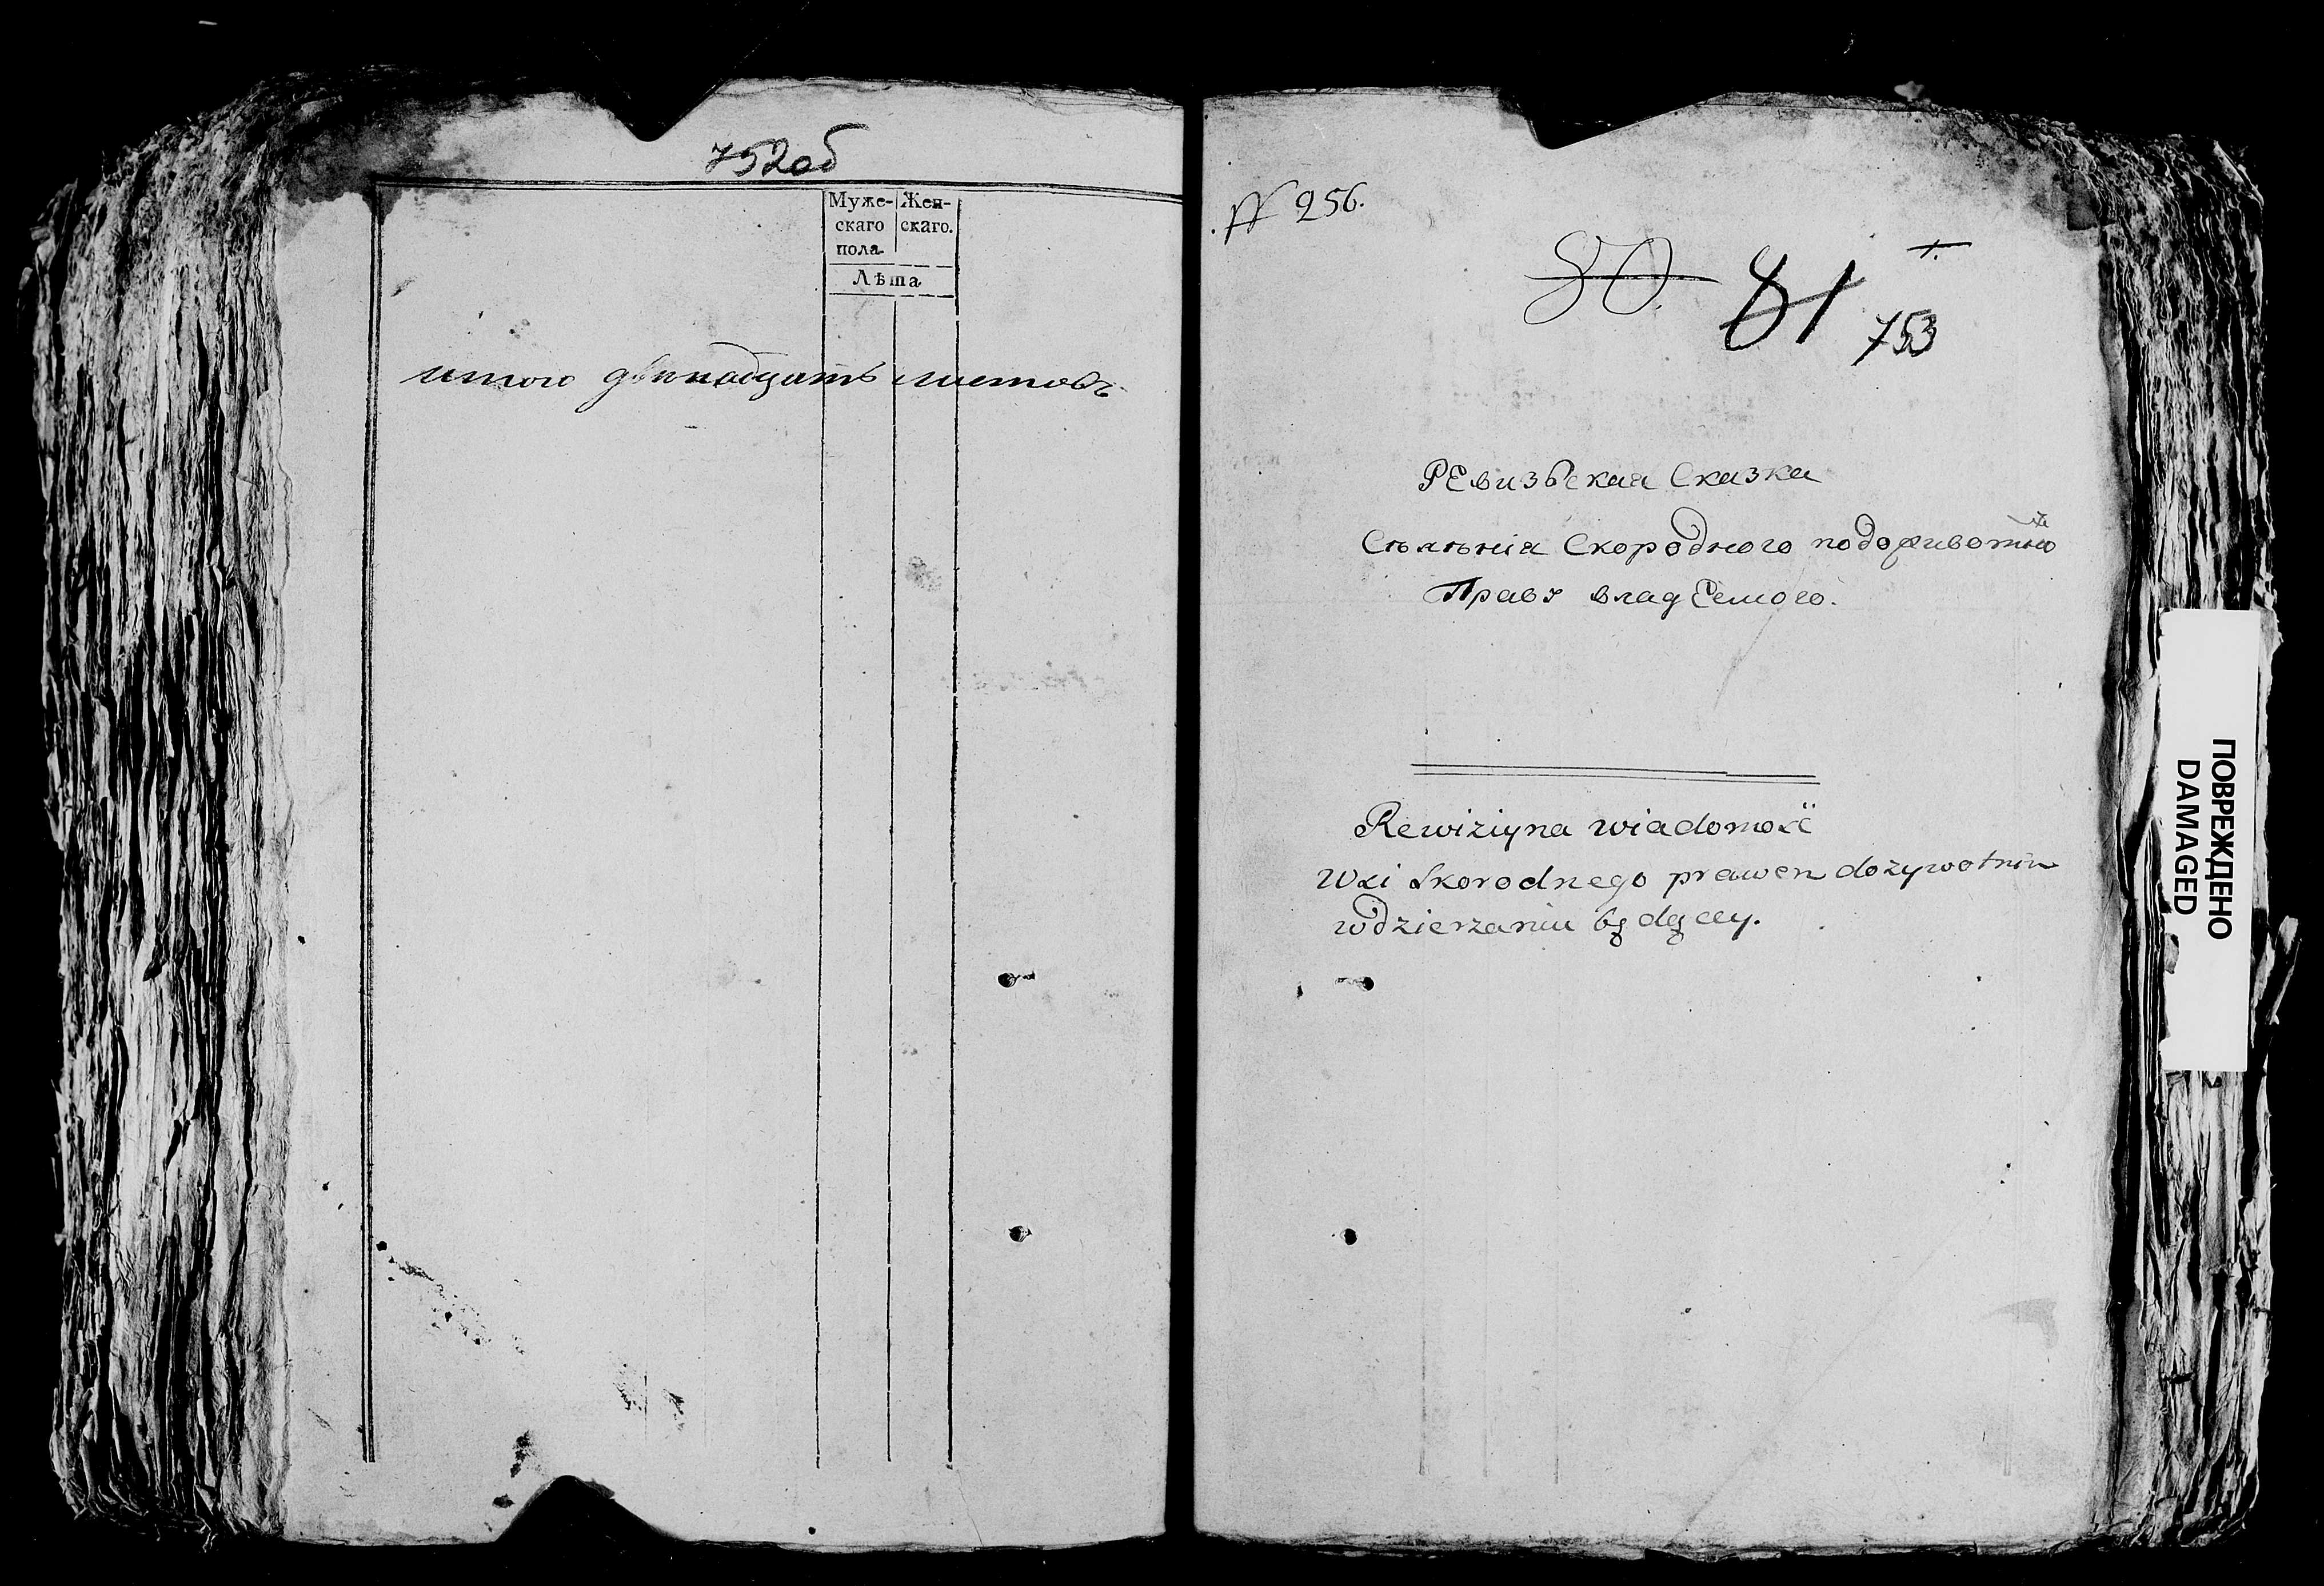 752об
Муже- Жен-
скаго скаго.
пола
Лѣта
итого двѣнадцать листовъ
№ 256.
80. 81 1.
753
РЕвизьская Сказка
Сѣлѣнія Скородного подоживотнго
Праву владЕемого.
Rewiziyna wiadomość
Wsi Skorodnego prawem dożywotnim
w dzierżaniu będącey.
ПОВРЕЖДЕНО
DAMAGED